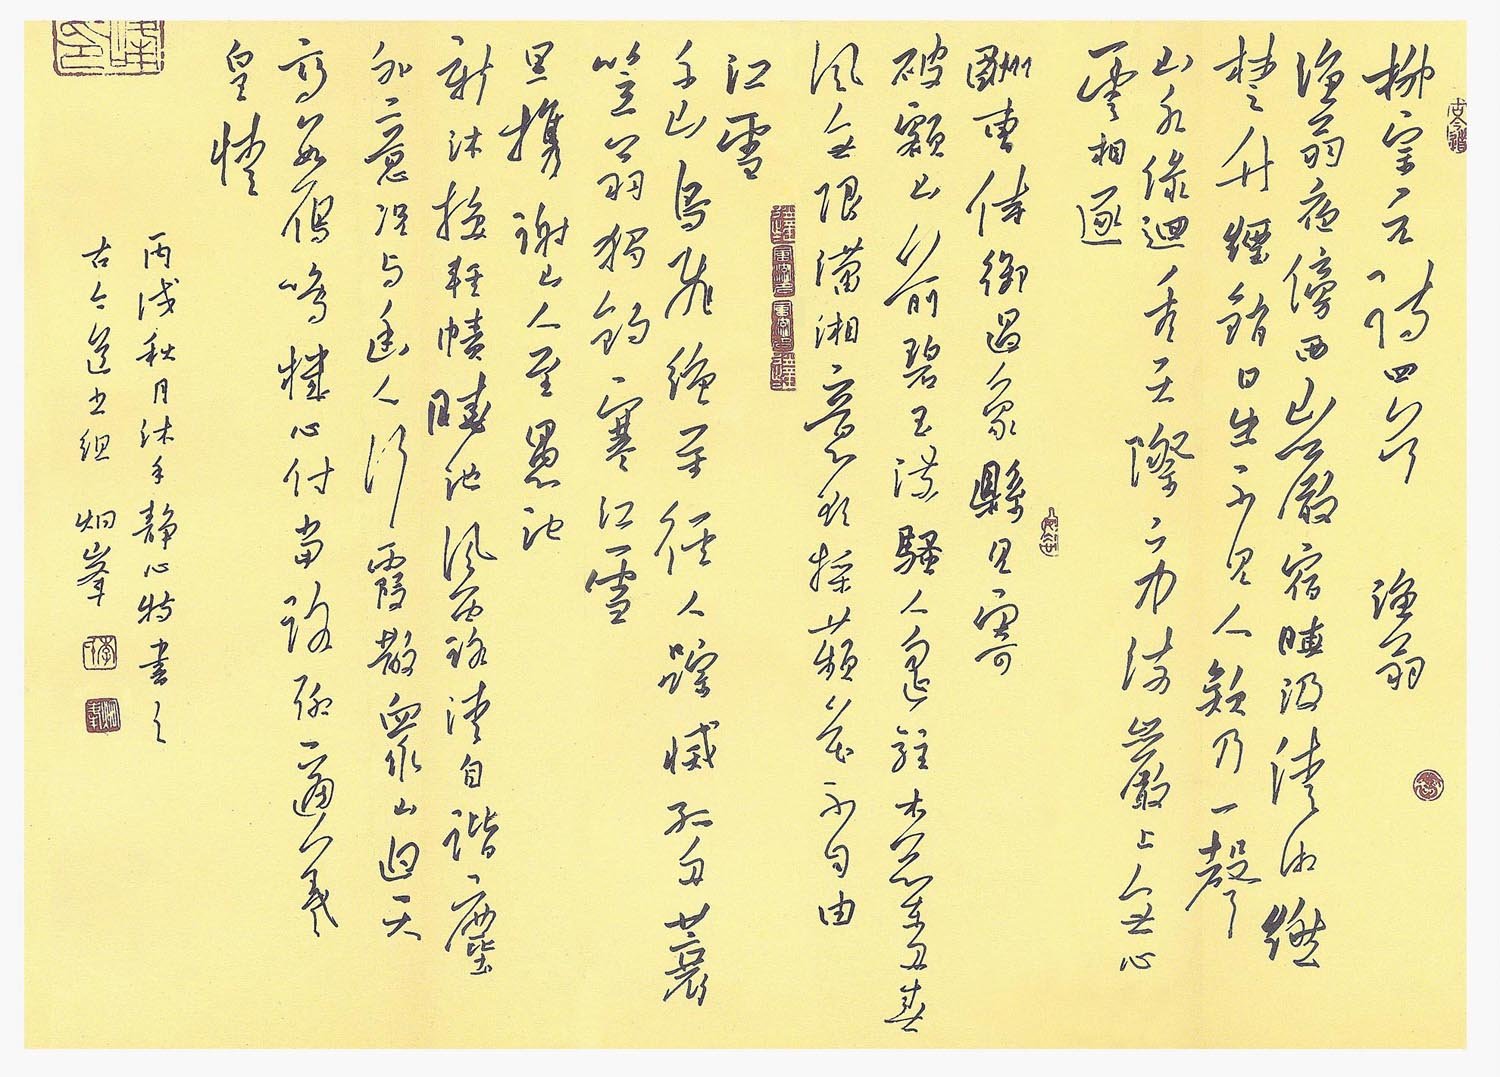 柳宗元詩四首 漁翁
漁翁夜傍西山巖宿曉汲清湘燃
楚竹煙銷日出不見人欸乃一聲
山水綠迴看天際下中流巖上無心
雲相逐
酬曹侍御過象縣見寄
破額山前碧玉流騷人遙駐木蘭舟春
風無限瀟湘意欲採蘋花不自由
江雪
千山鳥飛絕萬徑人蹤滅孤舟蓑
笠翁獨釣寒江雪
旦攜謝山人至愚池
新沐換輕幘曉池風露清自諧塵
外意況與幽人行霞散眾山迥天
高數雁鳴機心付當路聊適羲
皇情
丙戌秋月沐手靜心特書之
古今道
古今道